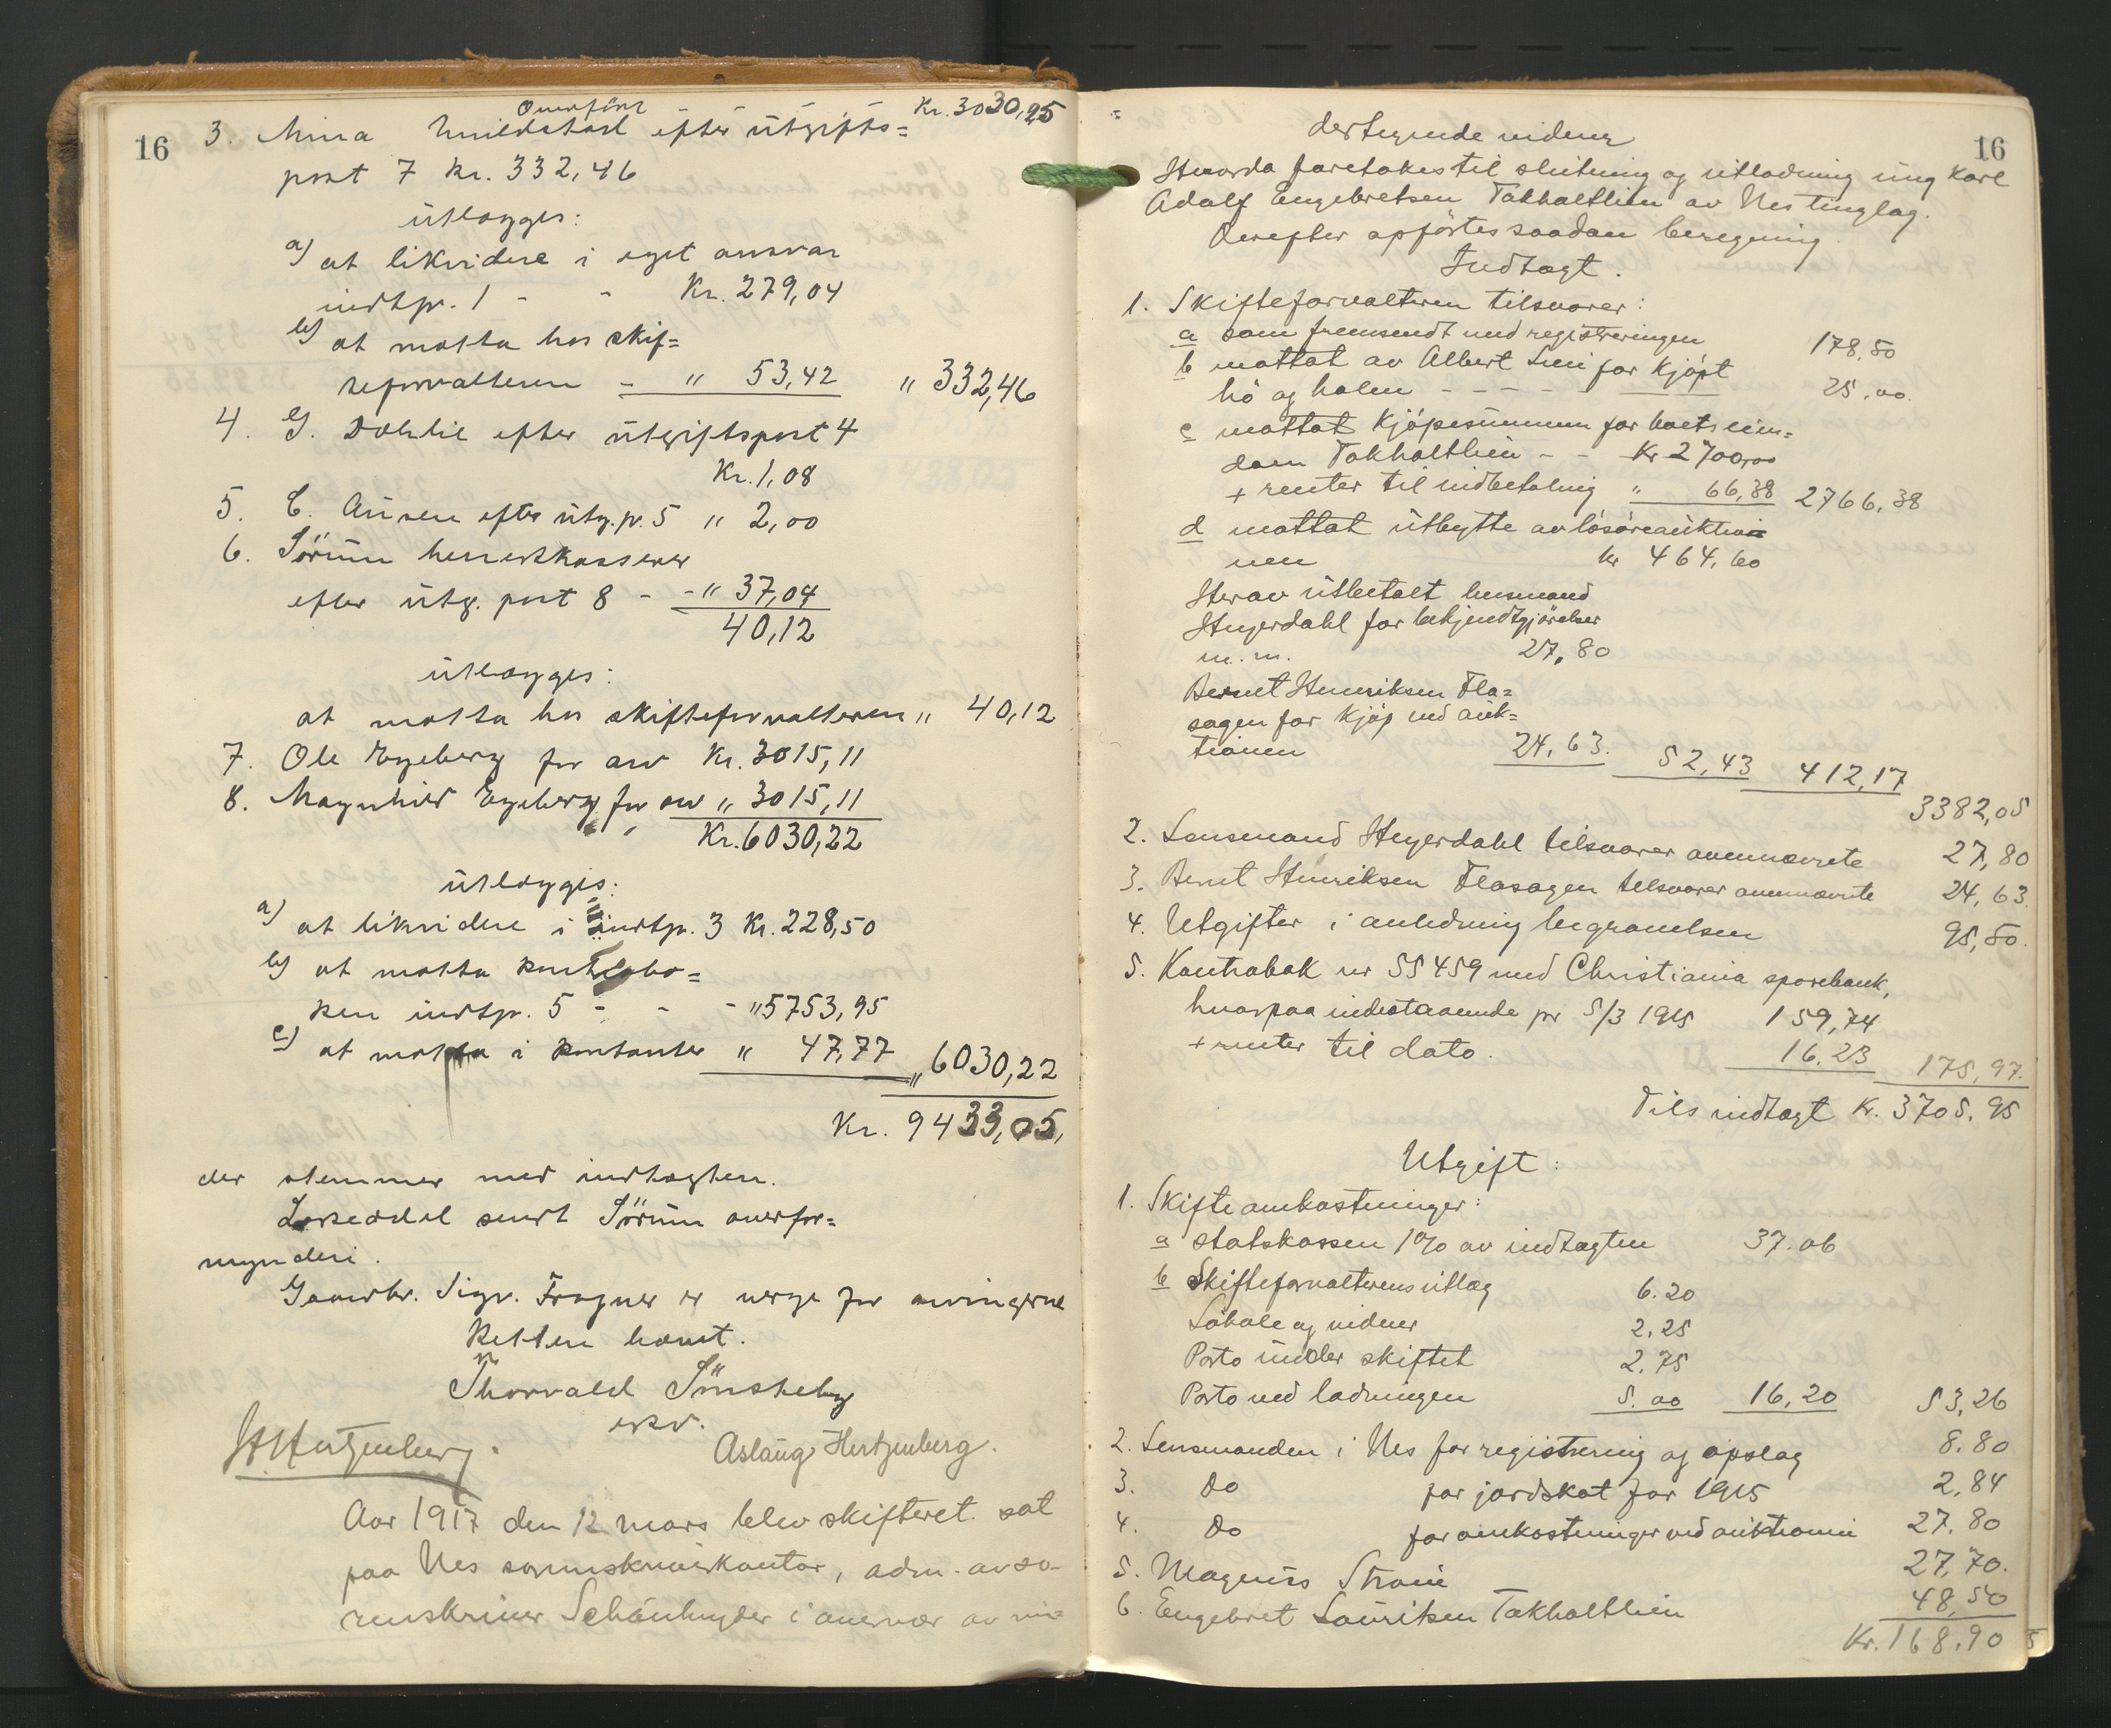 16
Overført Kr. 3030,25
3. Mina efter utgifts=
post 7 Kr. 332,46
utlægges:
a) at likvidere i eget ansvar
indtp. 1 - - Kr. 279,04
b) at motta hos skif=
teforvalteren - " 53,42 " 332,46
4. G. Dæhlie efter utgiftspost 4
Kr. 1,08
5. C. Ausen efter utg.p. 5 " 2,00
6. Sørum herredskasserer
efter utg. post 8 - - " 37,04
40,12
utlægges:
at motta hos skifteforvalteren " 40,12
7. Ole Engeberg for arv Kr. 3015,11
8. Magnhild Engeberg for arv " 3015,11
Kr. 6030,22
utlægges:
a) at likvidere i indtp. 3 Kr. 228,50
b) at motta kontrabo=
ken indtp. 5 - - - " 5753,95
c) at motta i kontanter " 47,77 " 6030,22
Kr. 9433,05,
der stemmer med indtægten.
Loseddel sendt Sørum overfor=
mynderi.
Gaardbr. Sigv. Fragner er verge for arvingerne
Retten hævet.
Thorvald Sønsteby
eksv.
H Hertzenberg. Aslaug Hertzenberg.
Aar 1917 den 12 mars blev skifteret sat
paa Nes sorenskriverkontor, adm. av so-
renskriver Schönheyder i overvær av un=
16
dertegnede vidner
Hvorda foretokes til slutning og utlodning ung Karl
Adolf Engebretsen Takholtlien av Nes tinglag.
Derefter opførtes saadan beregning
Indtægt.
1. Skifteforvalteren tilsvarer:
a som fremsendt med registreringen 178,50
b mottat av Albert Lini for kjøpt
hö og halm - - - - 25,00.
c mottat kjøpesummen for boets eien=
dom Takholtlien - - Kr 2700,00
+ renter til indbetaling " 66,38 2766,38
d mottat utbytte av løsøreauktio
nen kr 464,60
Herav utbetalt lensmand
Heyerdahl for bekjendtgjørelser
m.m. 27,80
Bernt Henriksen Fla=
sagen for kjøp ved auk=
tionen 24,63. 52,43 412,17
3382,05
2. Lensmand Heyerdahl tilsvarer ovennævnte 27,80
3. Bernt Henriksen Flasagen tilsvarer ovennævnte 24,63.
4. Utgifter i anledning begravelsen 95,50.
5. Kontrabok nr 55459 med Christiania sparebank,
hvorpaa indestaaende pr 5/3 1915 159,74
+ renter til dato. 16.23 175,97.
Tils indtægt Kr. 3705,95
Utgift:
1. Skifteomkostninger:
a statskassen 1% av indtægten 37.06
b Skifteforvalterens utlæg 6.20
Lokale og vidner 2,25
Porto under skiftet 2,75
Porto ved lodningen 5.00 16,20 53,26
2. Lensmanden i Nes for registrering og opslag 8.80
3. Do for jordskat for 1915 2,84
4. Do for omkostninger ved auktionen 27.80
5. Magnus Strøm 27,70.
6. Engebret Lauritsen Takholtlien 48,50
Kr. 168.90